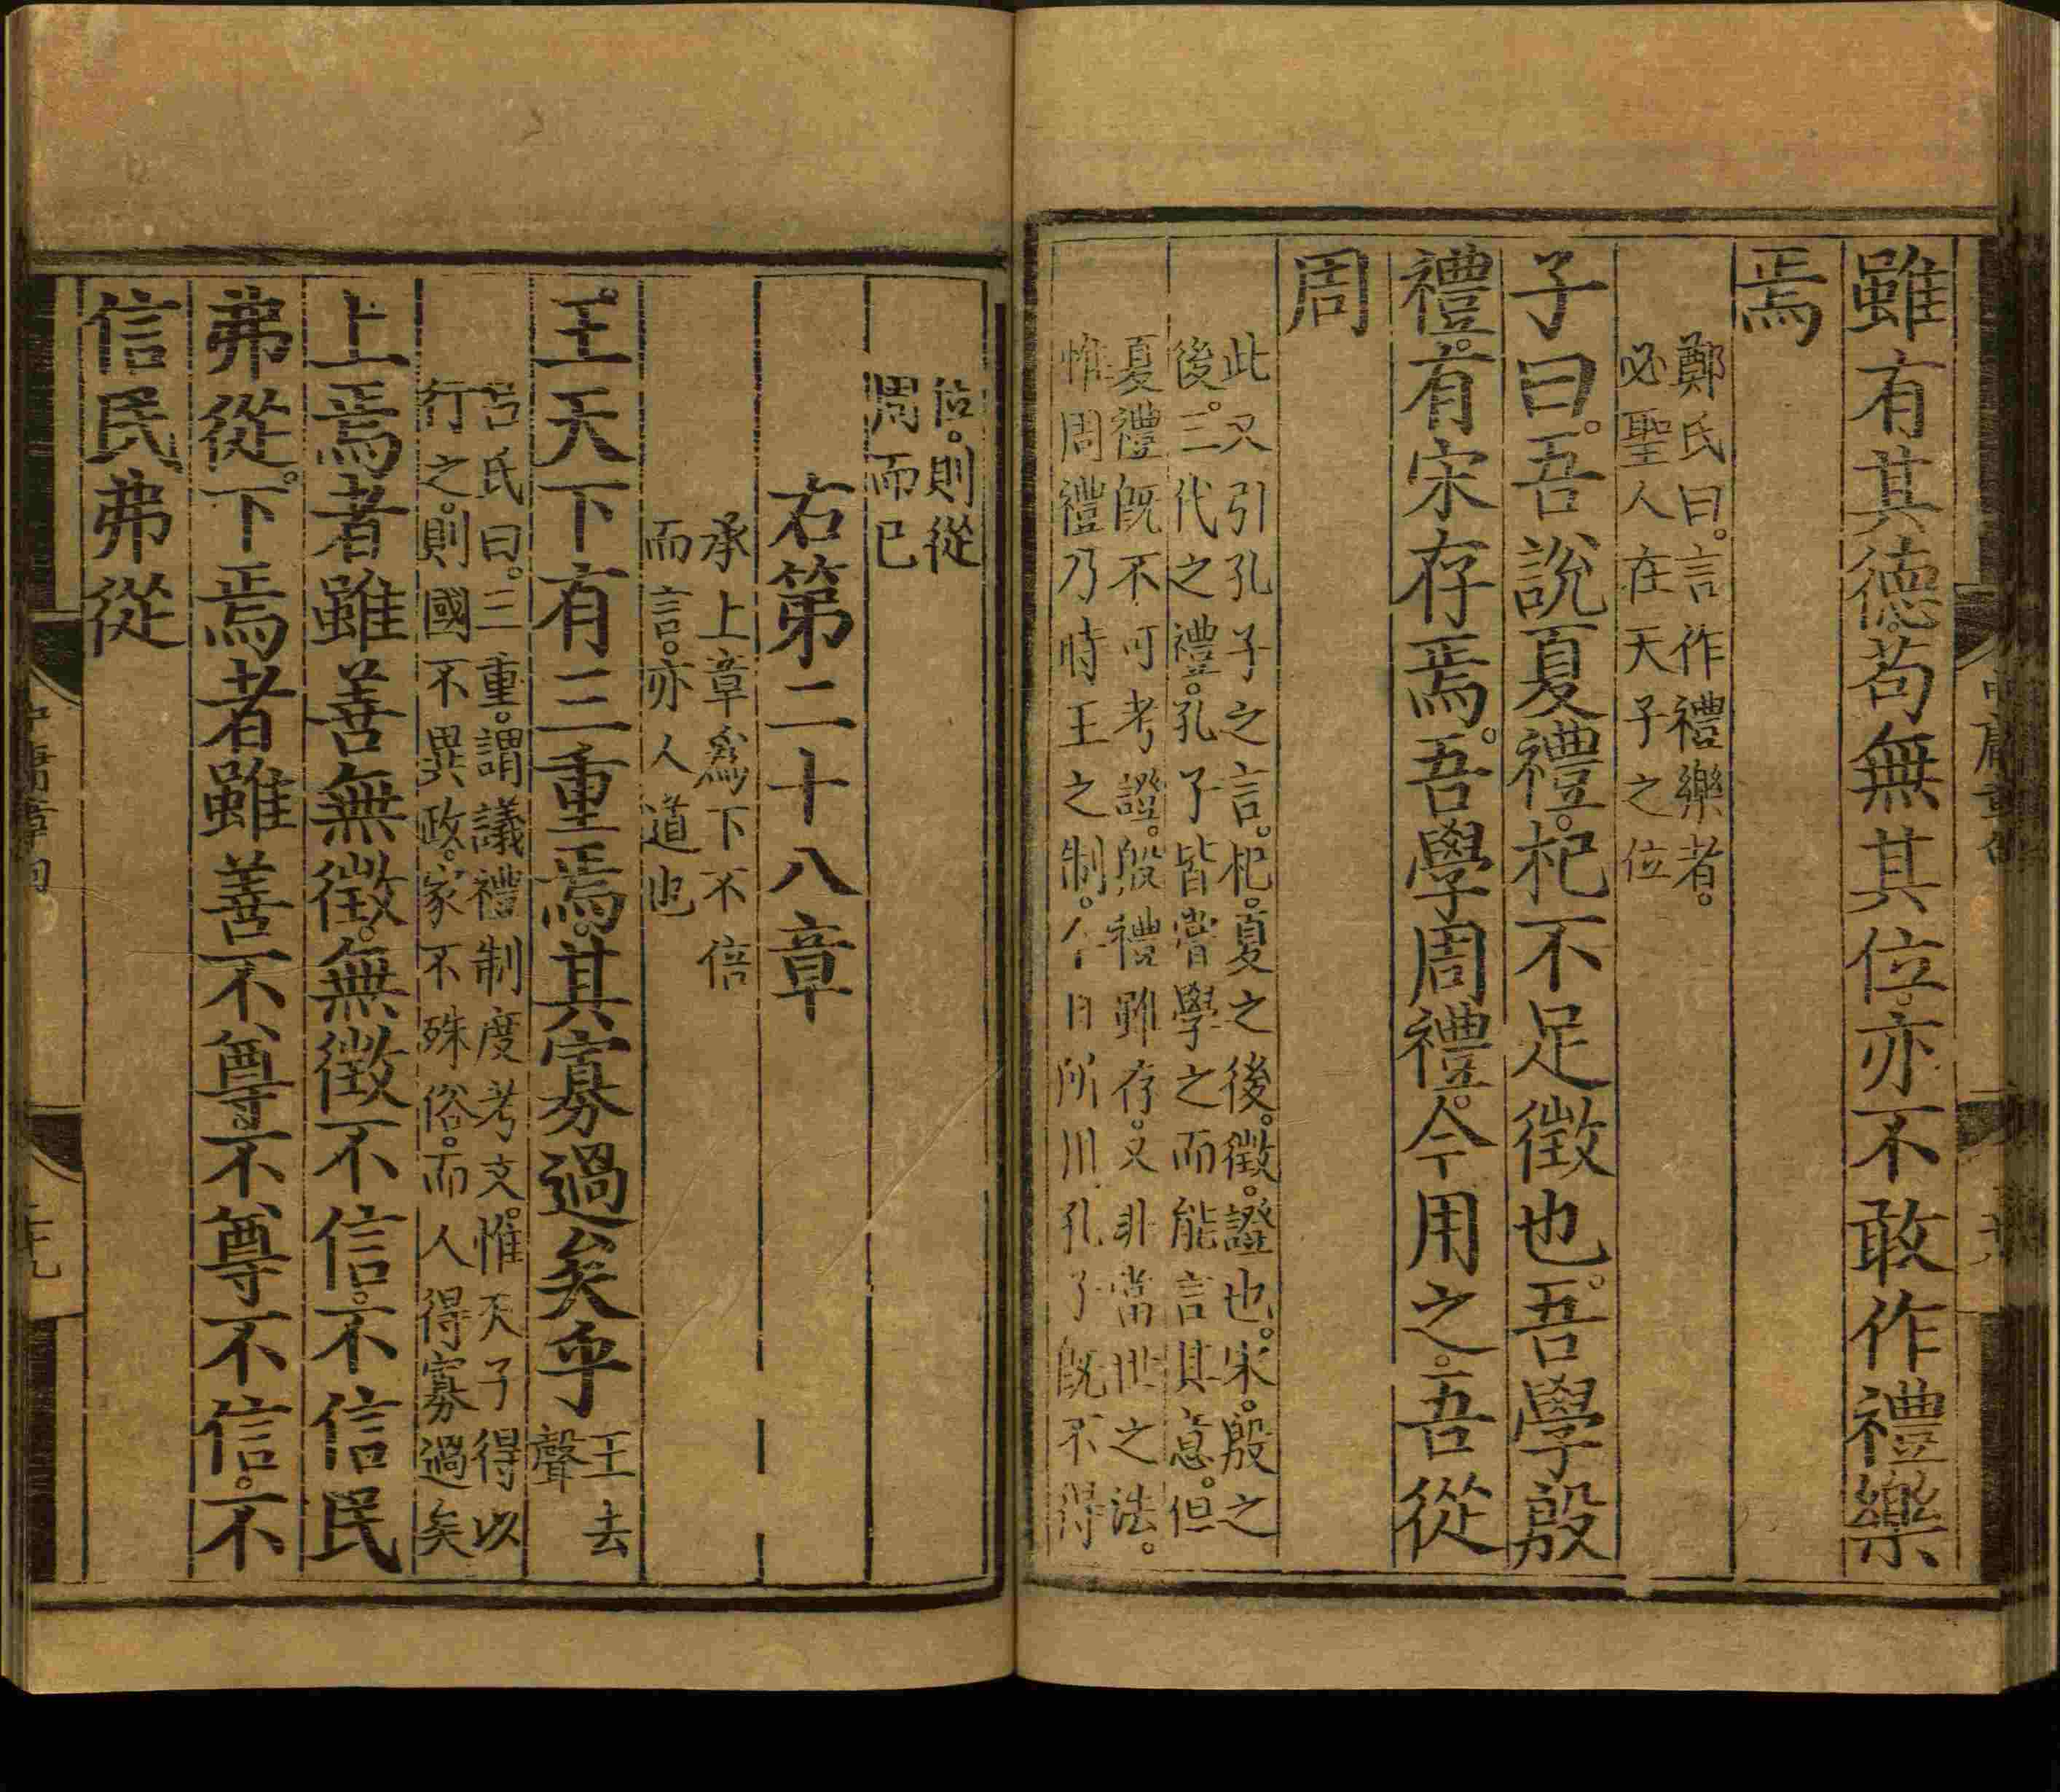 雖有其德。苟無其位。亦不敢作禮樂
焉
鄭氏曰。言作禮樂者。
必聖人在天子之位
子曰。吾說夏禮。杞不足徵也。吾學殷
禮。有宋存焉。吾學周禮。今用之。吾從
周
此又引孔子之言。杞。夏之後。徵。證也。宋。殷之
後。三代之禮。孔子皆嘗學之而能言其意。但
夏禮既不可考證。殷禮雖存。又非當世之法。
惟周禮乃時王之制。今日所用。孔子既不得
位。則從
周而已
右第二十八章
承上章爲下不倍
而言。亦人道也
王天下有三重焉。其寡過矣乎
王去
聲
呂氏曰。三重。謂議禮制度考文。惟天子得以
行之。則國不異政。家不殊俗。而人得寡過矣
上焉者雖善無徵。無徵不信。不信民
弗從。下焉者雖善不尊。不尊不信。不
信民弗從
中庸章句